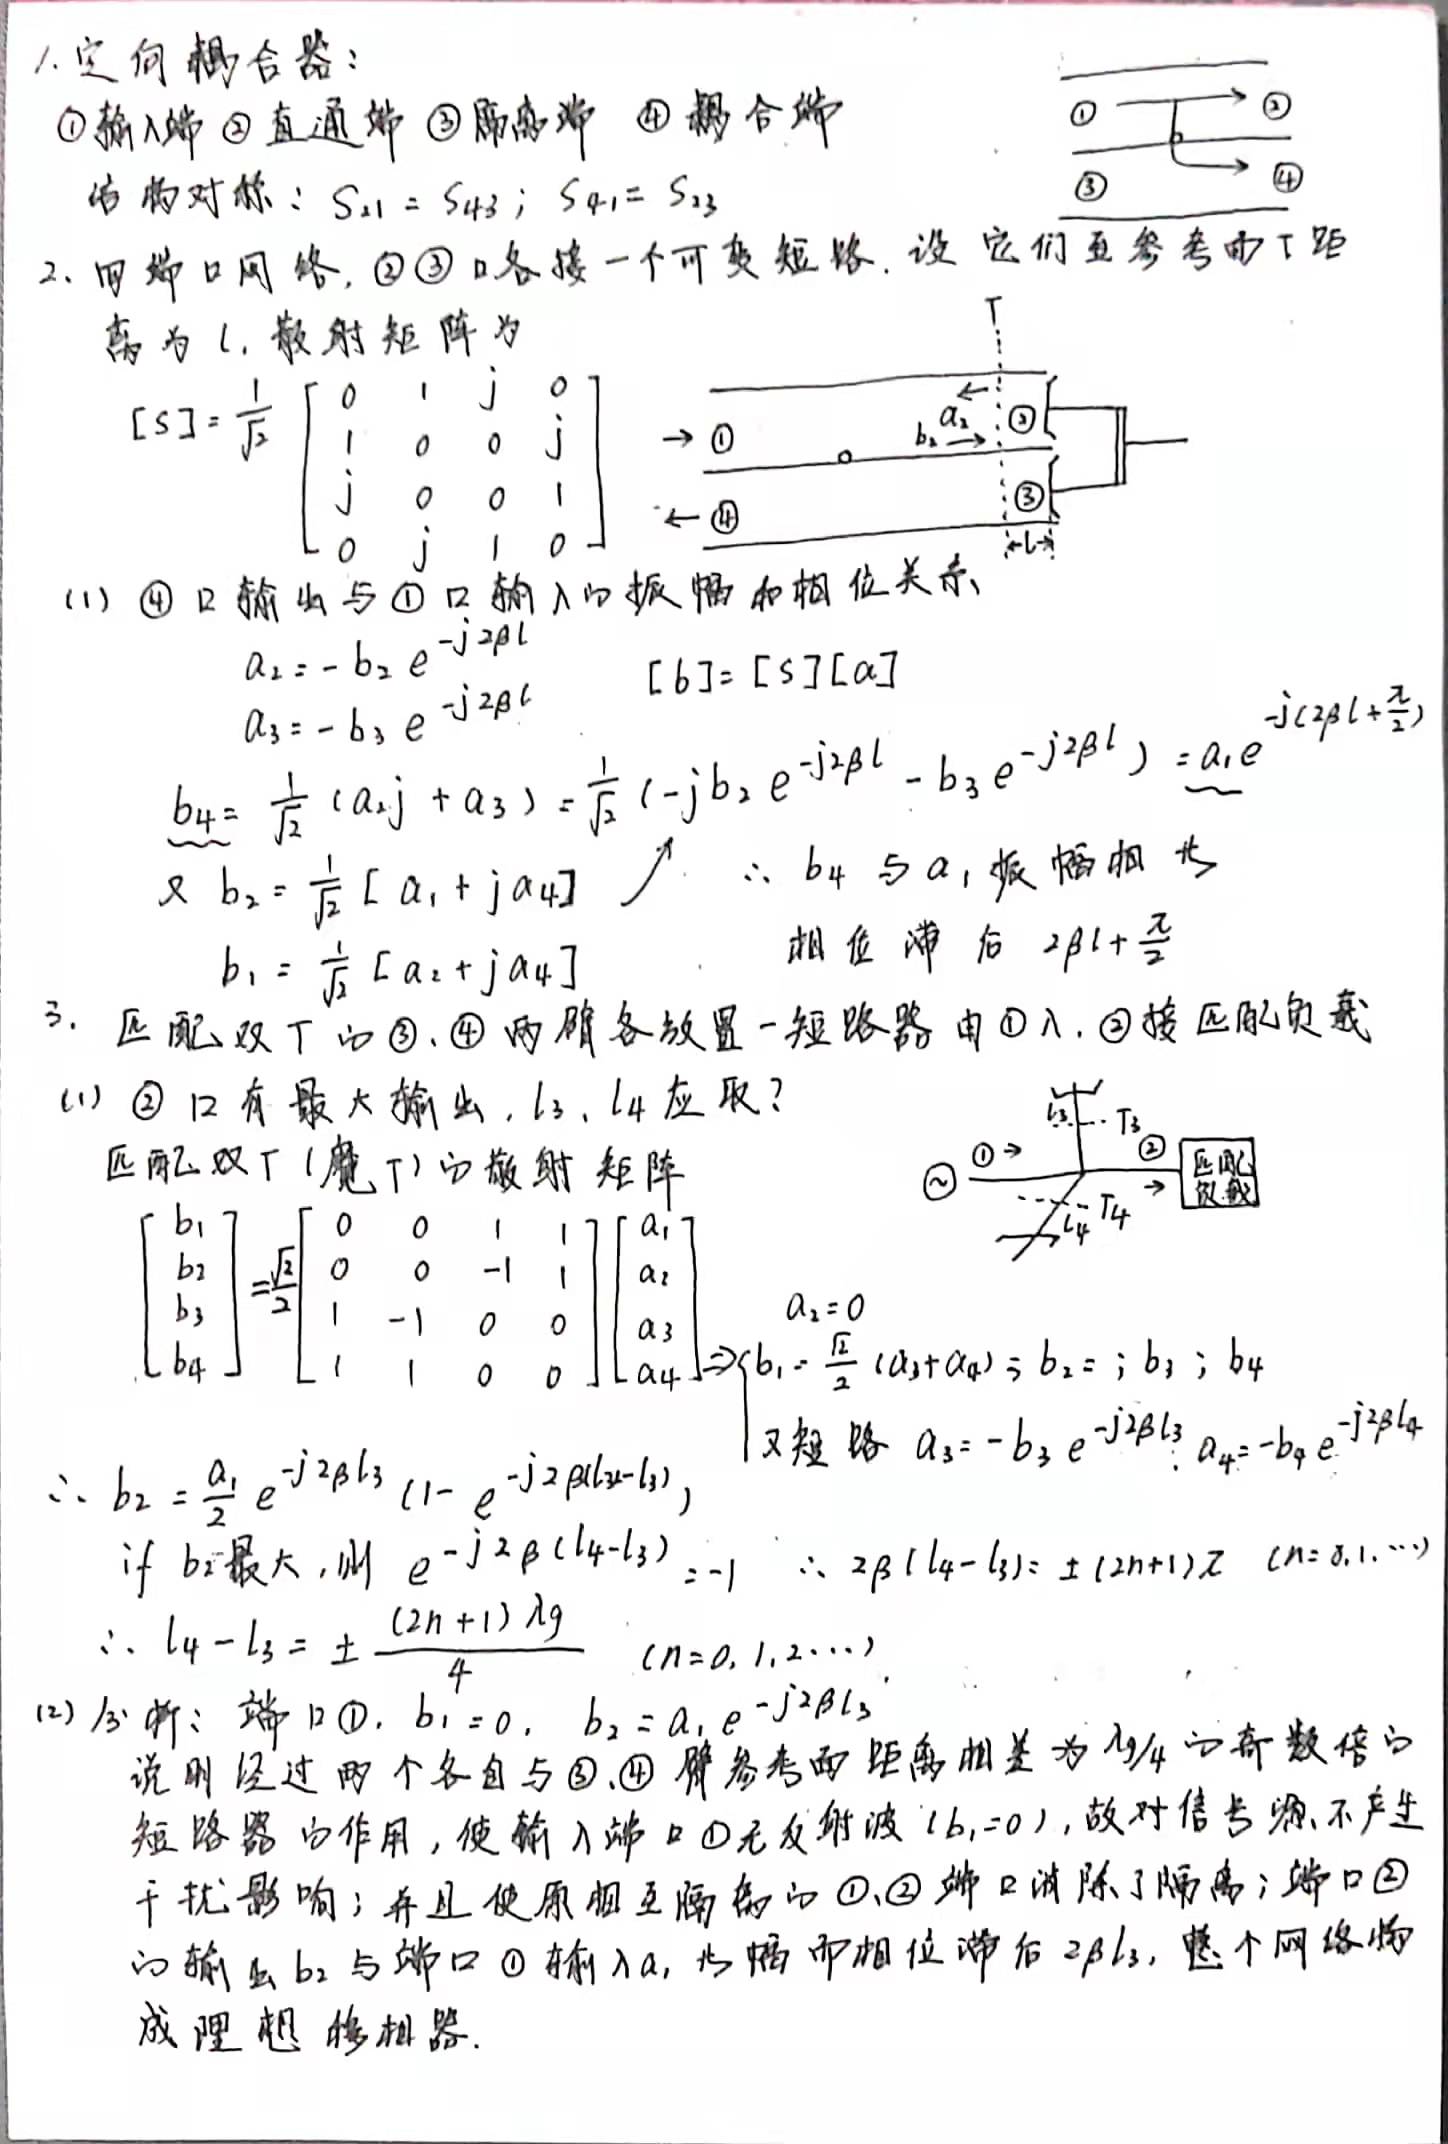 1.定向耦合器：
①输入端 ②直通端 ③隔离端 ④耦合端
① ②
③ ④
结构对称：S₂₁ = S₄₃；S₄₁ = S₂₃
2. 四端口网络, ②③口各接一个可变短路. 设它们至参考面T距
离为 l, 散射矩阵为
T
[S] = 1/√2 [0 1 j 0
1 0 0 j
j 0 0 1
0 j 1 0]
→① a₂ b₂ ②
←④ ③
l
(1) ④口输出与①口输入的振幅和相位关系
a₂ = -b₂ e^{-j2βl}
a₃ = -b₃ e^{-j2βl}
[b] = [S][a]
b₄ = 1/√2 (a₂j + a₃) = 1/√2 (-jb₂ e^{-j2βl} - b₃ e^{-j2βl}) = a₁e^{-j(2βl+π/2)}
又 b₂ = 1/√2 [a₁ + ja₄]
∴ b₄ 与 a₁ 振幅相等
b₁ = 1/√2 [a₂ + ja₄]
相位滞后 2βl + π/2
3. 匹配双T的③、④两臂各放置一短路器由①入, ②接匹配负载
(1) ②口有最大输出, l₃、l₄应取?
匹配双T(魔T)的散射矩阵
l₃ T₃
~ ①→ ② → 匹配负载
l₄ T₄
[b₁ b₂ b₃ b₄] = √2/2 [0 0 1 1
0 0 -1 1
1 -1 0 0
1 1 0 0] [a₁ a₂ a₃ a₄]
a₂ = 0
⇒ { b₁ = √2/2 (a₃+a₄)；b₂ = ；b₃；b₄
又短路 a₃ = -b₃ e^{-j2βl₃}；a₄ = -b₄ e^{-j2βl₄}
∴ b₂ = a₁/2 e^{-j2βl₃} (1 - e^{-j2β(l₄-l₃)})
if b₂最大, 则 e^{-j2β(l₄-l₃)} = -1 ∴ 2β(l₄-l₃) = ±(2n+1)π (n=0,1,…)
∴ l₄ - l₃ = ± (2n+1)λg/4 (n=0,1,2…)
(2) 分析：端口①, b₁=0, b₂ = a₁ e^{-j2βl₃}
说明经过两个各自与③、④臂参考面距离相差为λg/4的奇数倍的
短路器的作用, 使输入端口①无反射波(b₁=0), 故对信号源不产生
干扰影响；并且使原相互隔离的①、②端口消除了隔离；端口②
的输出b₂与端口①输入a₁等幅而相位滞后2βl₃, 整个网络构
成理想移相器.